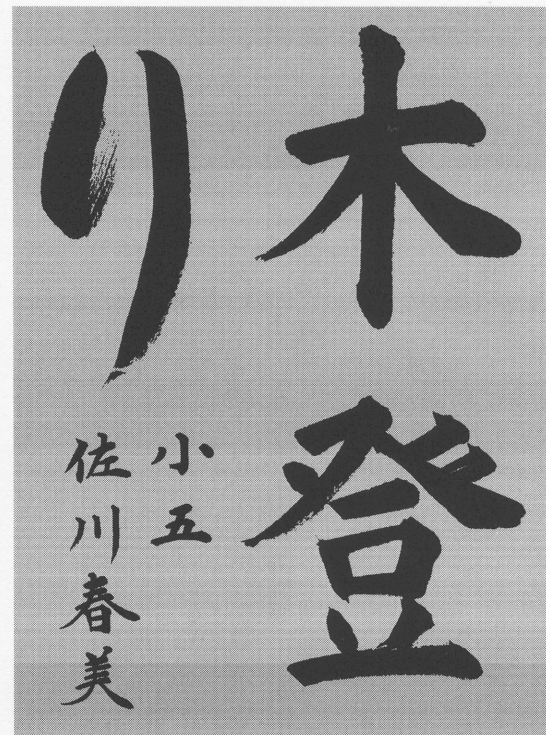 木登
り
小五
佐川春美